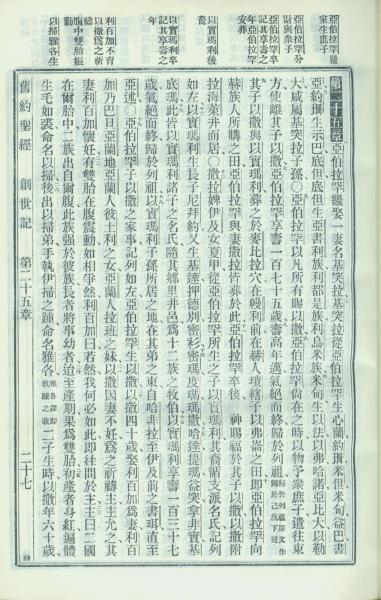 亞伯拉罕繼
室生庶子
亞伯拉罕分
財與衆子
亞伯拉罕卒
記其享壽之
年亞伯拉罕
安葬
以實瑪利後
裔
以實瑪利卒
記其享壽之
年
利百加不育
以撒爲之祈
禱
腹中雙胎軀
動
以掃雅各生
第二十五章亞伯拉罕繼娶一妻名基突拉基突拉從亞伯拉罕生心蘭約珊米但米甸益巴書
亞約珊生示巴底但底但生亞書利族利都是族利烏米族米甸生以法以弗哈諾亞比大以勒
大咸屬基突拉子孫〇亞伯拉罕以凡所有賜以撒亞伯拉罕尙在之時以物予衆庶子遣往東
方使離其子以撒亞伯拉罕享壽一百七十五歲壽高年邁氣絕而終歸於列祖歸於列祖原文作歸於己族下同
其子以撒與以實瑪利葬之於麥比拉穴在幔利前在赫人瑣轄子以弗崙之田即亞伯拉罕向
赫族人所購之田亞伯拉罕與妻撒拉皆葬於此亞伯拉罕卒後 神賜福於其子以撒以撒附
拉海萊井而居〇撒拉婢伊及女夏甲從亞伯拉罕所生之子以實瑪利其裔循支派名氏記列
如左以實瑪利生長子尼拜約又生基達押德別密衫密瑪度瑪瑪撒哈達提瑪益突拿非實基
底瑪此皆以實瑪利諸子之名氏隨其鄉里井邑爲十二族之牧伯以實瑪利享壽一百三十七
歲氣絕而終歸於列祖以實瑪利子孫所居之地在其弟之東自哈非拉至伊及前之書珥直至
亞述〇亞伯拉罕子以撒之家事記列如左亞伯拉罕生以撒以撒四十歲娶利百加爲妻利百
加乃巴旦亞蘭地亞蘭人彼土利之女亞蘭人拉班之妹以撒因妻不妊爲之祈禱主主允之其
妻利百加懷妊有雙胎在腹震動如相爭然利百加曰若然我何必如此即往問於主主曰二國
在爾胎中二族出自爾腹此族強於彼族長者將事幼者迨至產期果爲雙胎初產者身紅遍體
生毛如裘命名以掃後出以掃弟手執伊掃之踵命名雅各雅各譯即執踵之義二子生時以撒年六十歲
舊約聖經 創世記 第二十五章 二十七